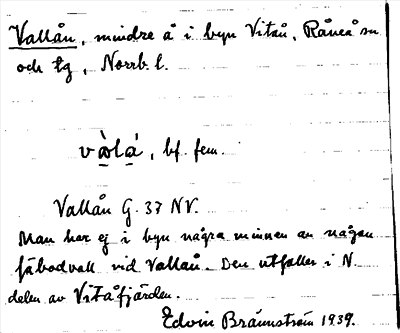 Vallån, mindre å i byn Vitån, Råneå sn
och tg, Norrb. l.
vàlá, bf. fem.
Vallån G. 37 NV.
Man har ej i byn några minnen av någon
fäbodvall vid Vallån. Den utfaller i N
delen av Vitåfjärden.
Edvin Brännström 1939.